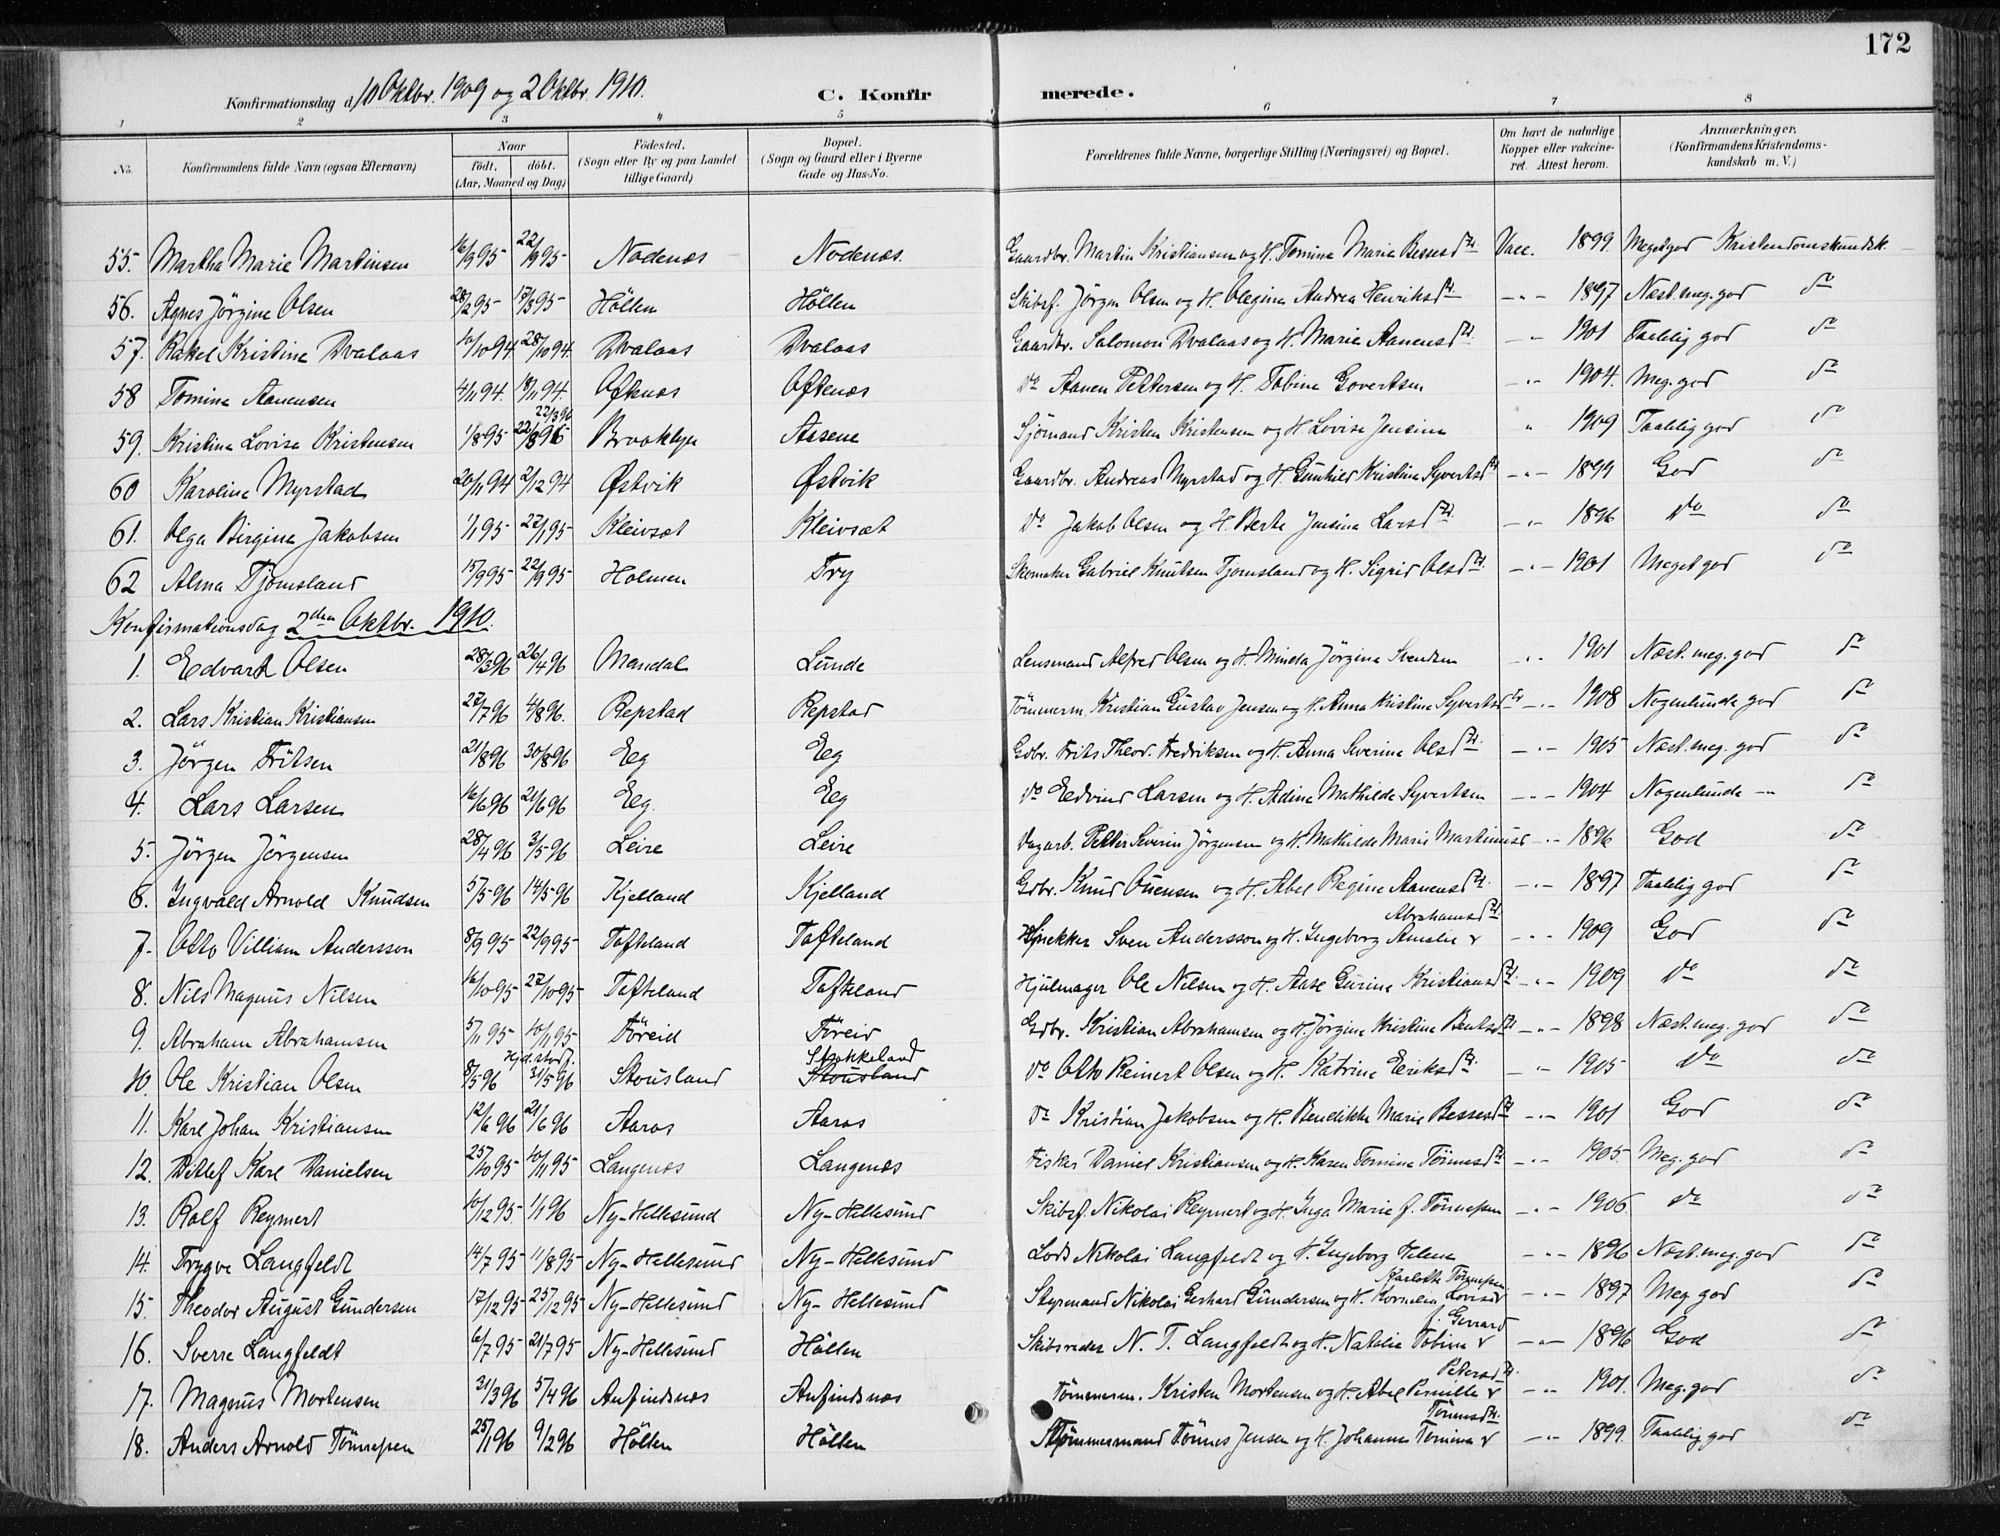 172
Konfirmationsdag d. 10 Oktbr. 1909 og 2 Oktbr. 1910. C. Konfirmerede.
1 2 3 4 5 6 7 8
No. Konfirmandens fulde Navn (ogsaa Efternavn) Naar født, døbt. (Aar, Maaned og Dag) Fødested. (Sogn eller By og paa Landet tillige Gaard) Bopæl. (Sogn og Gaard eller i Byerne Gade og Hus-No. Forældrenes fulde Navne, borgerlige Stilling (Næringsvei) og Bopæl. Om havt de naturlige Kopper eller vaccineret. Attest herom. Anmærkninger. (Konfirmandens Kristendomskundskab m. V.)
55. Martha Marie Martinsen 16/9 95 22/9 95 Nodenæs Nodenæs. Gaardbr. Martin Kristiansen og H. Tomine Marie Bessesdtr. Vacc. 1899. Meget god Kristendomskundsk
56. Agnes Jörgine Olsen 28/2 95 17/3 95 Höllen Höllen Skibsf. Jörgen Olsen og H. Olegine Andrea Henriksdtr. -"- 1897 Næst. meg. god do
57. Rakel Kristine Dvalaas 10/10 94 28/10 94 Dvalaas Dvalaas Gaardbr. Salomon Dvalaas og H. Marie Aanensdtr. -"- 1901 Taalelig god do
58 Tomine Aanensen 4/11 94 18/11 94. Oftenæs Oftenæs do Aanen Pettersen og H. Tobine Govertsen -"- 1904. Meg. god do
22/3 96
59. Kristine Lovise Kristensen 1/8 95 22/3 96 Brooklyn Aasene Sjömand Kristen Kristensen og H. Lovise Jensine " 1909 Taalelig god do
60 Karoline Myrstad 20/11 94 2/12 94 Østvik Østvik Gaardbr. Andreas Myrstad og H. Gunhild Kristine Syvertsdtr. -"- 1899 God do
61. Olga Birgine Jakobsen 1/1 95 27/1 95 Kleivsæt Kleivsæt do Jakob Olsen og H. Berte Jensine Larsdtr. -"- 1896 do do
62 Alma Tjomsland 15/9 95 22/9 95 Holmen Try Skomaker Gabriel Knutsen Tjomsland og H. Sigrid Olsdtr. -"- 1901 Meget god do
Konfirmationsdag 2den Oktbr. 1910.
1. Edvart Olsen 28/3 96 26/4 96 Mandal Lunde Lensmand Alfred Olsen og H. Minda Jörgine Svendsen -"- 1901 Næst. meg. god do
2. Lars Kristian Kristiansen 27/7 96 4/8 96. Repstad Repstad Tömmerm. Kristian Gustav Jensen og H. Anna Kristine Syvertsdtr -"- 1908 Nogenlunde god do
3. Jörgen Fritsen 21/8 96 30/8 96 Eeg Eeg Gdbr. Frits Theod. Fredriksen og H. Anna Severine Olsdtr. -"- 1905 Næst. meg. god do
4. Lars Larsen 16/6 96 21/6 96 Eeg. Eeg do Edvind Larsen og H. Adine Mathilde Syvertsen -"- 1904 Nogenlunde -"- do
5. Jörgen Jörgensen 28/4 96 3/5 96 Leire Leire Dagarb. Petter Severin Jörgensen og H. Mathilde Marie Martinusd -"- 1896 God do
6. Ingvald Arnold Knudsen 5/5 96 14/5 96 Kjelland Kjelland Gdbr. Knud Ouensen og H. Abel Regine Aanensdtr. -"- 1897 Taalelig god do
Abrahamsdtr.
7. Otto Villiam Andersson 8/9 95 22/9 95 Tofteland Tofteland Snekker Sven Andersson og H. Ingeborg Amalie v -"- 1909 God do
8. Nils Magnus Nilsen 16/10 95 27/10 95 Tofteland Tofteland Hjulmager Ole Nilsen og H. Aase Gurine Kristiansdtr. -"- 1909 do do
9. Abraham Abrahamsen 5/11 95 10/11 95 Föreid Föreid Gdbr. Kristian Abrahamsen og H. Jörgine Kristine Bentsdtr. -"- 1898 Næst. meg. god do
Hjd. Stokkeland
10. Ole Kristian Olsen 8/5 96 31/5 96 Stousland Stousland do Otto Reinert Olsen og H. Katrine Eriksdtr. -"- 1905 do do
11. Karl Johan Kristiansen 12/6 96 21/6 96 Aaros Aaros do Kristian Jakobsen og H. Bendikte Marie Bessesdtr -"- 1901 God do
12. Ditlef Karl Danielsen 25/10 95 10/11 95 Langenæs Langenæs Fisker Daniel Kristiansen og H. Karen Tomine Tönnesdtr -"- 1905. Meg. god do
13. Rolf Reymert 10/12 95 1/1 96 Ny-Hellesund Ny-Hellesund Skibsf. Nikolai Reymert og H. Inga Marie f. Tönnesen -"- 1906. do do
14. Trygve Langfeldt 14/7 95 11/8 95 Ny-Hellesund Ny-Hellesund Lods Nikolai Langfeldt og H. Ingeborg Helene -"- 1896 Næst. meg. god do
Karlotte Tönnesen
15. Theodor August Gundersen 17/12 95 25/12 95 Ny-Hellesund Ny-Hellesund Styrmand Nikolai Gerhard Gundersen og H. Kornelia Lovise v -"- 1897 Meg. god do
f. Gerrard
16. Sverre Langfeldt 6/7 95 21/7 95 Ny-Hellesund Höllen Skibsreder N. T. Langfeldt og H. Natalie Tobine v -"- 1896 God do
Petersdtr.
17. Magnus Mortensen 31/3 96 5/4 96 Aufindsnæs Aufindsnæs Tömmerm. Kristen Mortensen og H. Abel Pernille v -"- 1901. Meg. god do
Tönnesdtr.
18. Anders Arnold Tönnesen 25/1 96 9/2 96 Höllen Höllen Tömmermand Tönnes Jensen og H. Johanne Tomine v -"- 1899. Taalelig god do